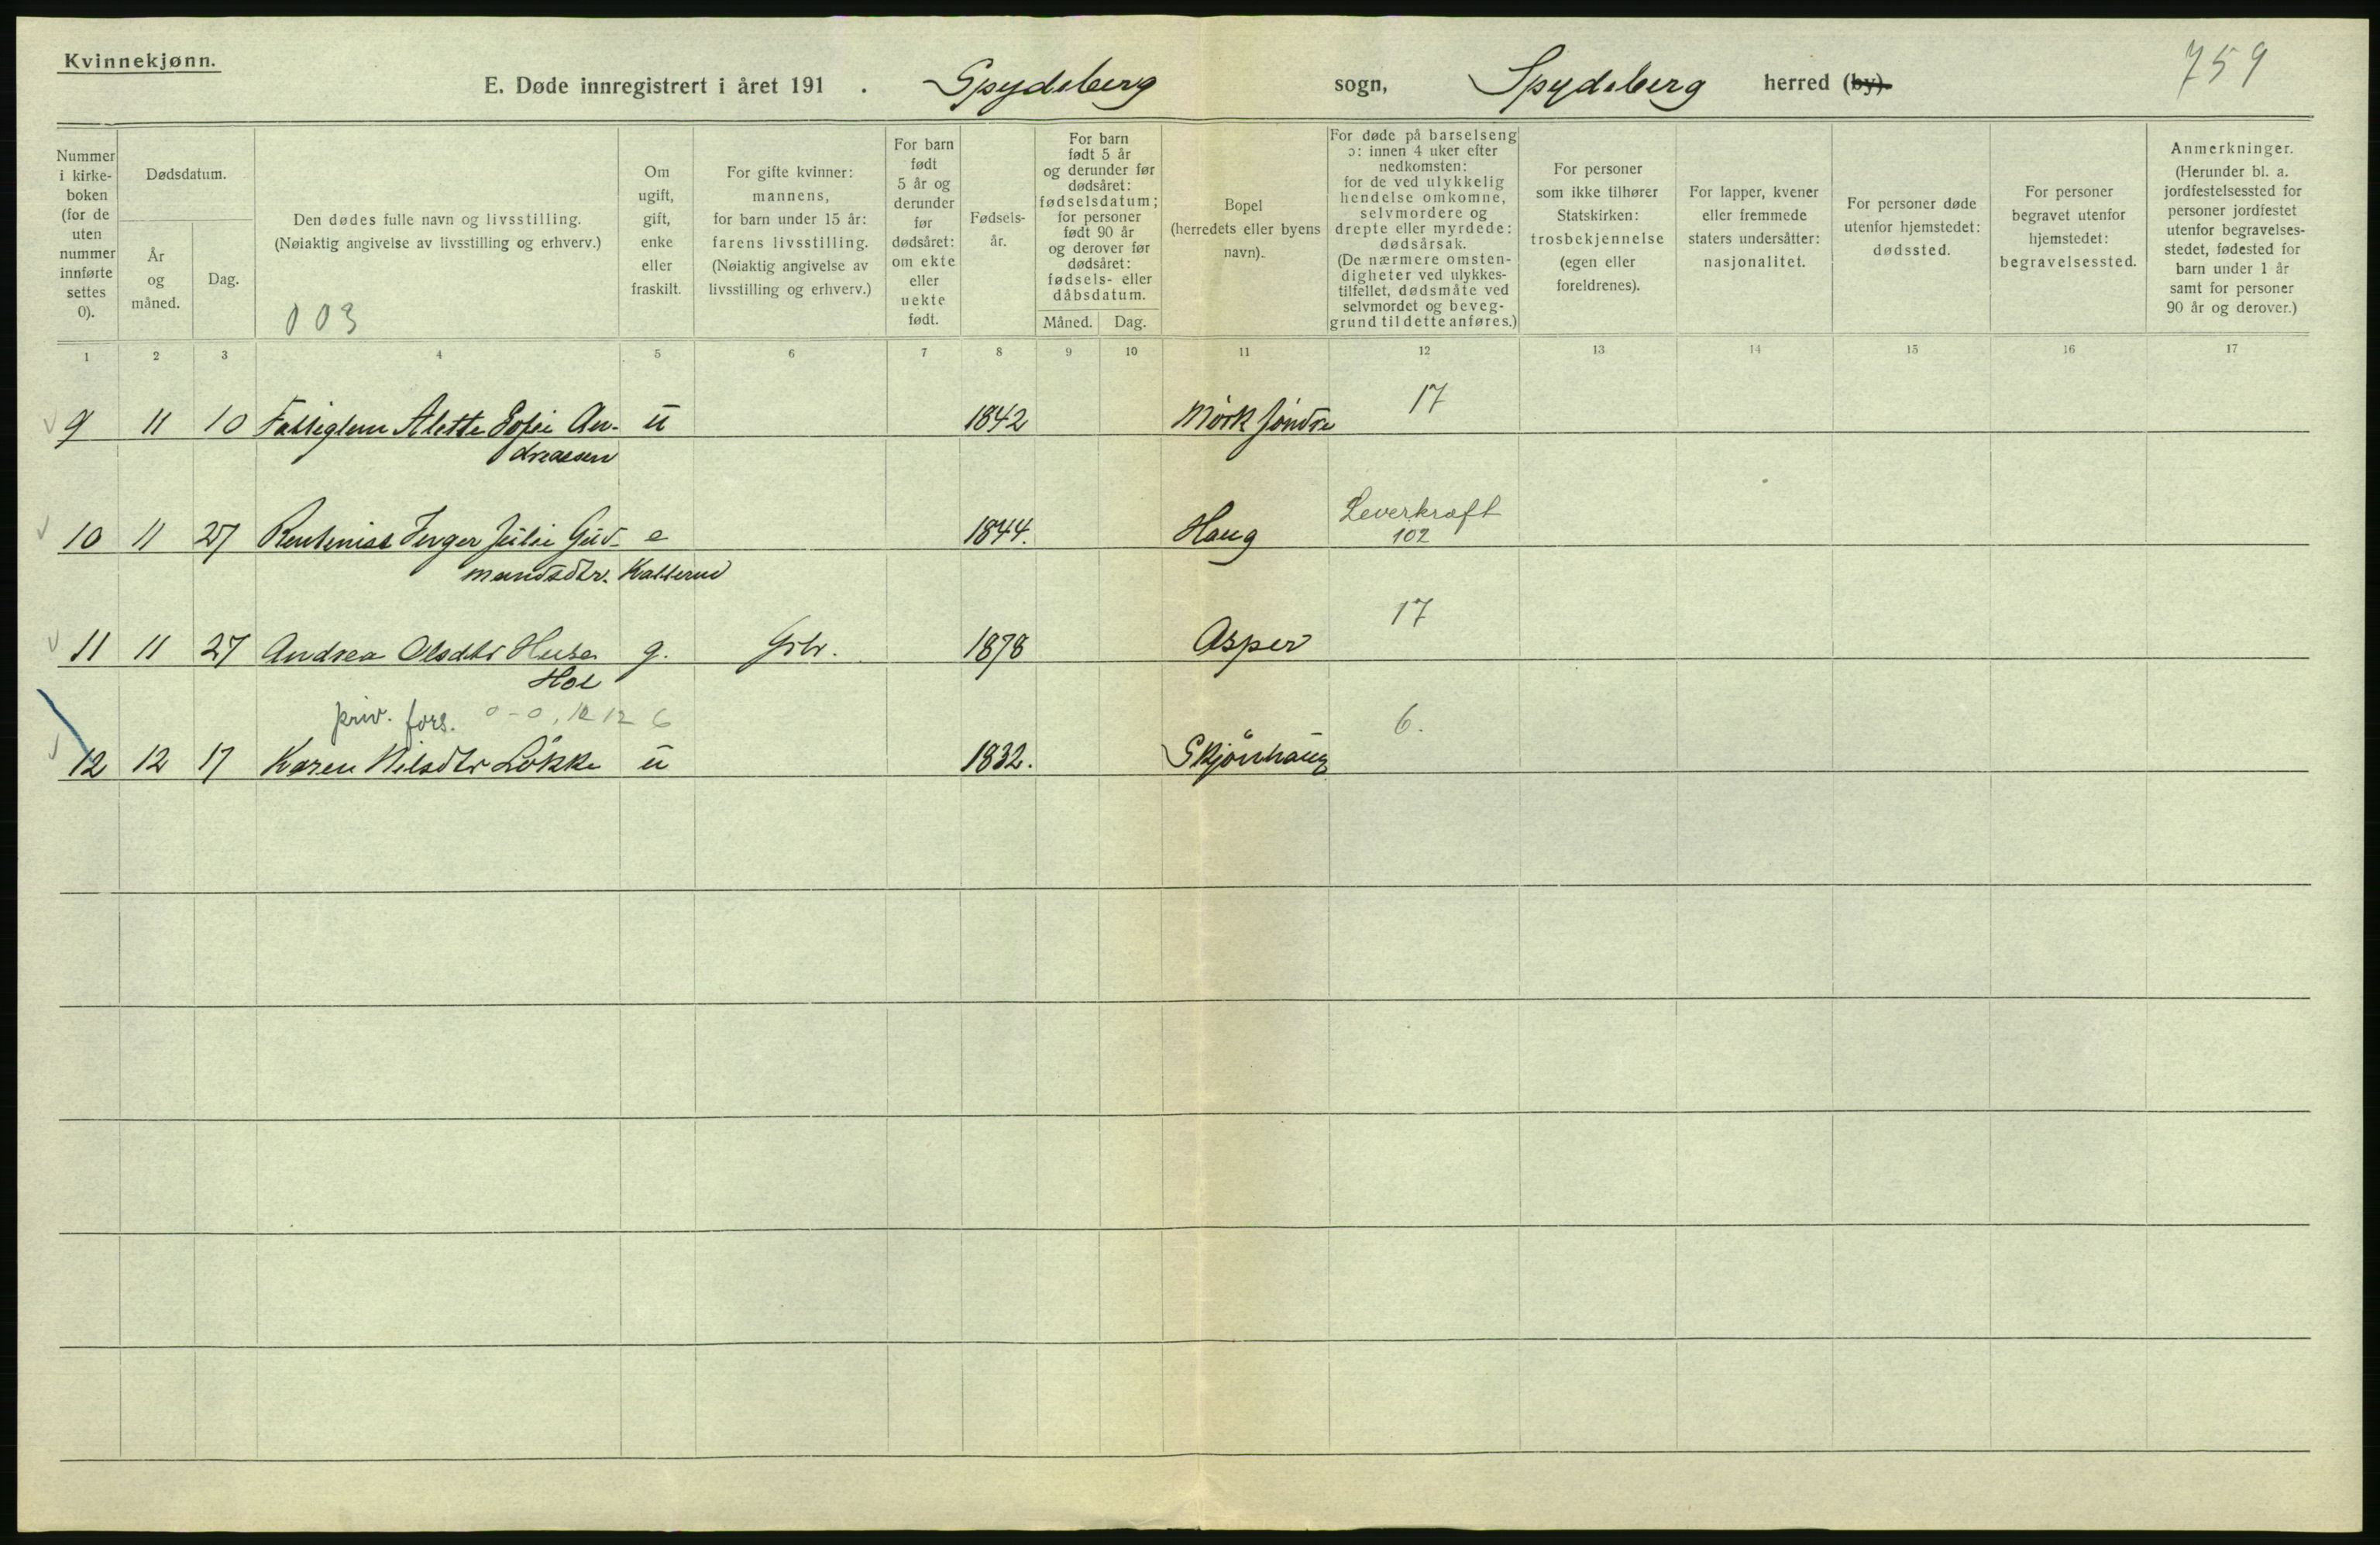 Kvinnekjønn.
759
E. Døde innregistrert i året 191 . Spydeberg sogn, Spydeberg herred (by).
Nummer i kirke-boken (for de uten nummer innførte settes 0).
Dødsdatum.
År og måned.
Dag.
Den dødes fulle navn og livsstilling.
(Nøiaktig angivelse av livsstilling og erhverv.)
003
Om ugift, gift, enke eller fraskilt.
For gifte kvinner: mannens, for barn under 15 år: farens livsstilling. (Nøiaktig angivelse av livsstilling og erhverv.)
For barn født 5 år og derunder før dødsåret: om ekte eller uekte født.
Fødsels-år.
For barn født 5 år og derunder før dødsåret: fødselsdatum; for personer født 90 år og derover før dødsåret: fødsels- eller dåbsdatum.
Måned. Dag.
Bopel (herredets eller byens navn).
For døde på barselseng ɔ: innen 4 uker efter nedkomsten: for de ved ulykkelig hendelse omkomne, selvmordere og drepte eller myrdede: dødsårsak. (De nærmere omsten-digheter ved ulykkes-tilfellet, dødsmåte ved selvmordet og beveg-grund til dette anføres.)
For personer som ikke tilhører Statskirken: trosbekjennelse (egen eller foreldrenes).
For lapper, kvener eller fremmede staters undersåtter: nasjonalitet.
For personer døde utenfor hjemstedet: dødssted.
For personer begravet utenfor hjemstedet: begravelsessted.
Anmerkninger. (Herunder bl. a. jordfestelsessted for personer jordfestet utenfor begravelses-stedet, fødested for barn under 1 år samt for personer 90 år og derover.)
1 2 3 4 5 6 7 8 9 10 11 12 13 14 15 16 17
17
9 11 10 Fattiglem Alette Sofie An- u 1842 Mørk søndre
dreassen
Leverkræft
10 11 27 Inger Julie Gud- e 1844. Haug 102
mundsdtr. Kallerud
17
11 11 27 Andrea Olsdtr Huse g. Grbr. 1878 Asper
Hol
priv. fors. 0-0, 12 12 6
6.
12 12 17 Karen Nilsdtr Løkke u 1832. Skjønhaug